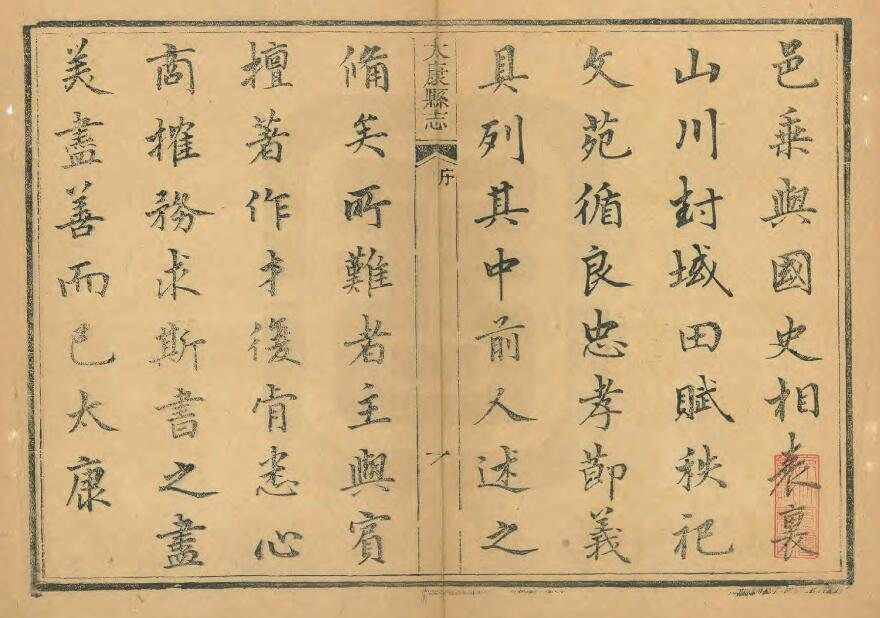 邑乗與國史相表裏
山川封域田賦秩祀
文苑循良忠孝節義
具列其中前人述之
太康縣志
序
一
備矣所難者主與賓
擅著作才復肯悉心
商搉務求斯書之盡
美盡善而已太康